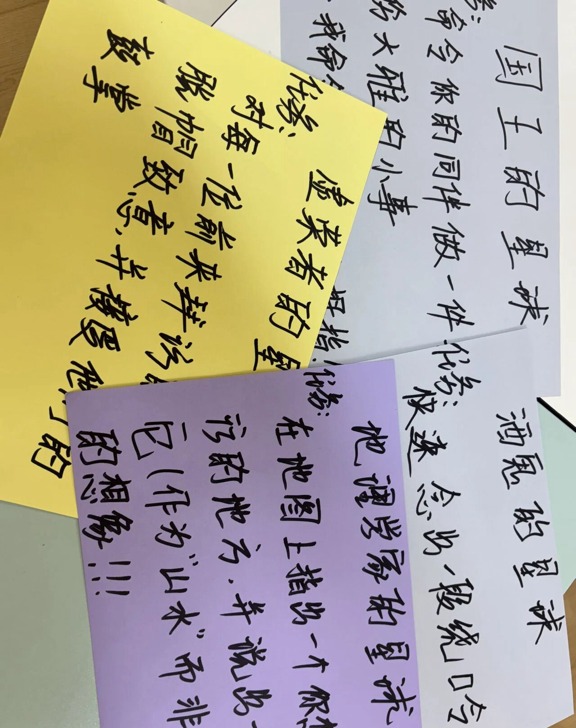 国王的星球
务:
命令你的同伴做一件
大雅的小事
我命
虚荣者的星
任务:
对每一位前来拜访
脱帽致意,并接受他们的
鼓掌
酒鬼的星球
任务:
快速念出一段绕口令
地理学家的星球
任务:
在地图上指出一个你想
访的地方,并说出
它(作为“山水”而非
的想象!!!